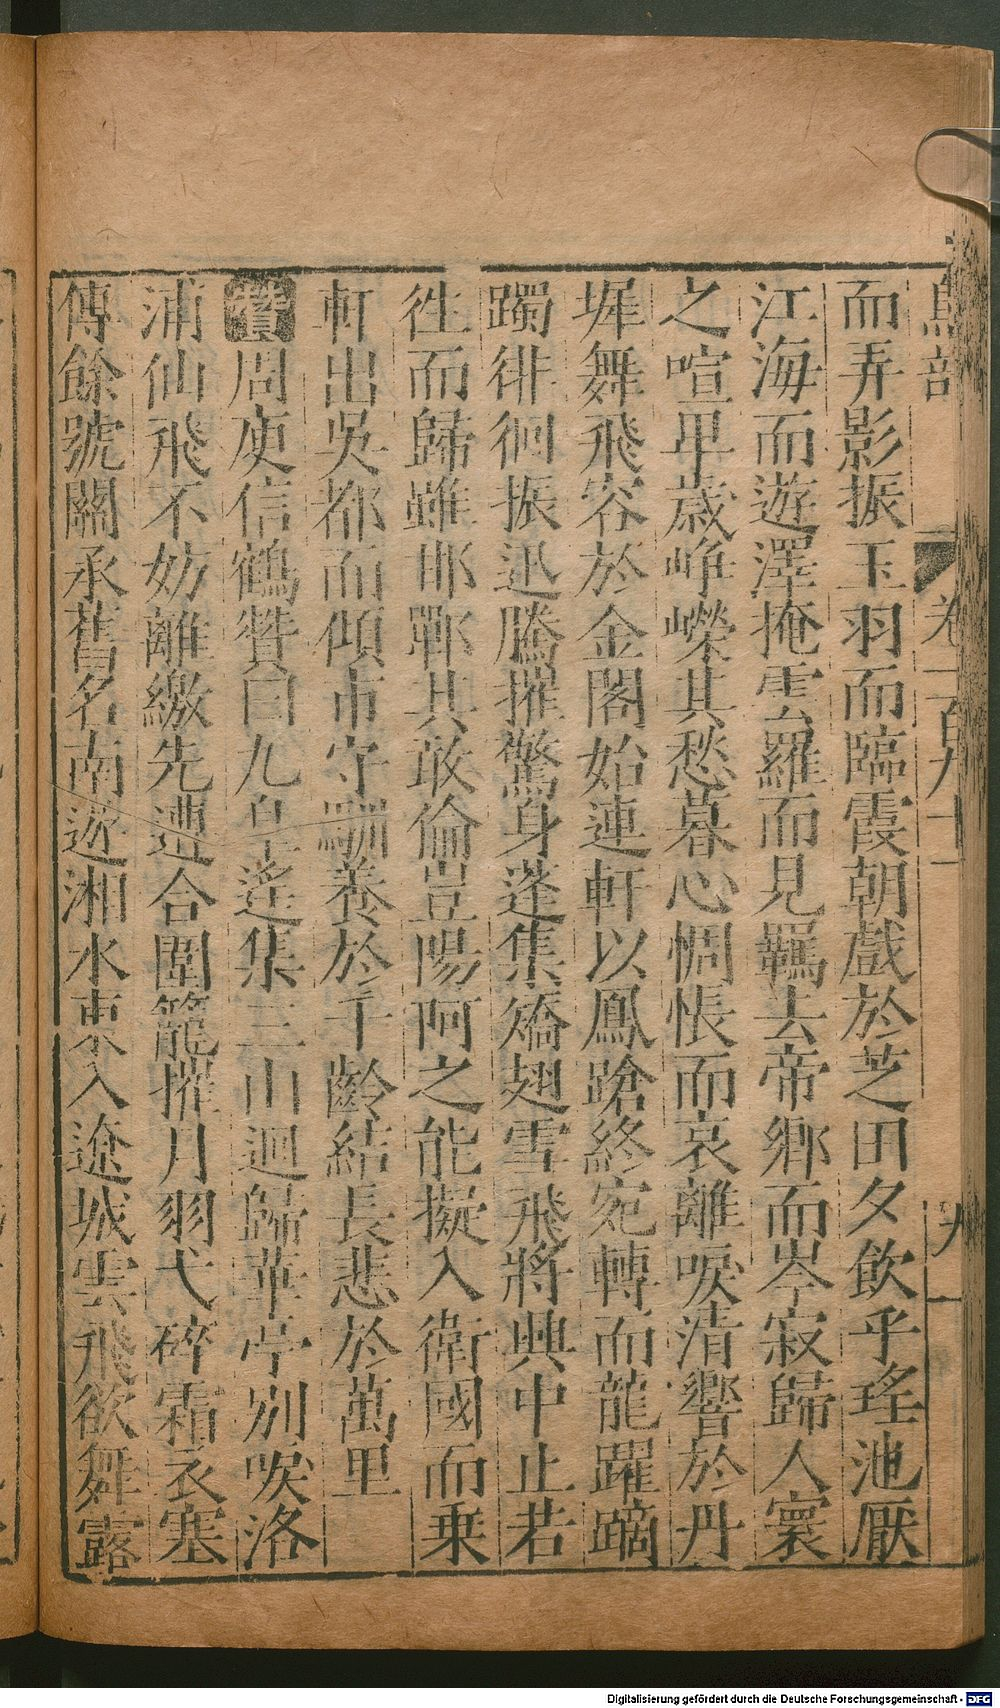 鳥部 卷一百九十 九
而弄影振玉羽而臨霞朝戲於芝田夕飲乎瑤池厭
江海而遊澤掩雲羅而見羈去帝鄉而岑寂歸人寰
之喧卑歲崢嶸其愁暮心惆悵而哀離唳清響於丹
墀舞飛容於金閣始連軒以鳳蹌終宛轉而龍躍蹢
躅徘徊振迅騰摧驚身蓬集矯翅雪飛將興中止若
徃而歸雖邯鄲其敢倫豈陽阿之能擬入衛國而乗
軒出吳都而傾市守馴養於千齡結長悲於萬里
贊周庾信鶴贊曰九皐遙集三山迴歸華亭別唳洛
浦仙飛不妨離繳先遭合圍籠摧月羽弋碎霜衣塞
傳餘號關承舊名南遊湘水東入遼城雲飛欲舞露
Digitalisierung gefördert durch die Deutsche Forschungsgemeinschaft - DFG